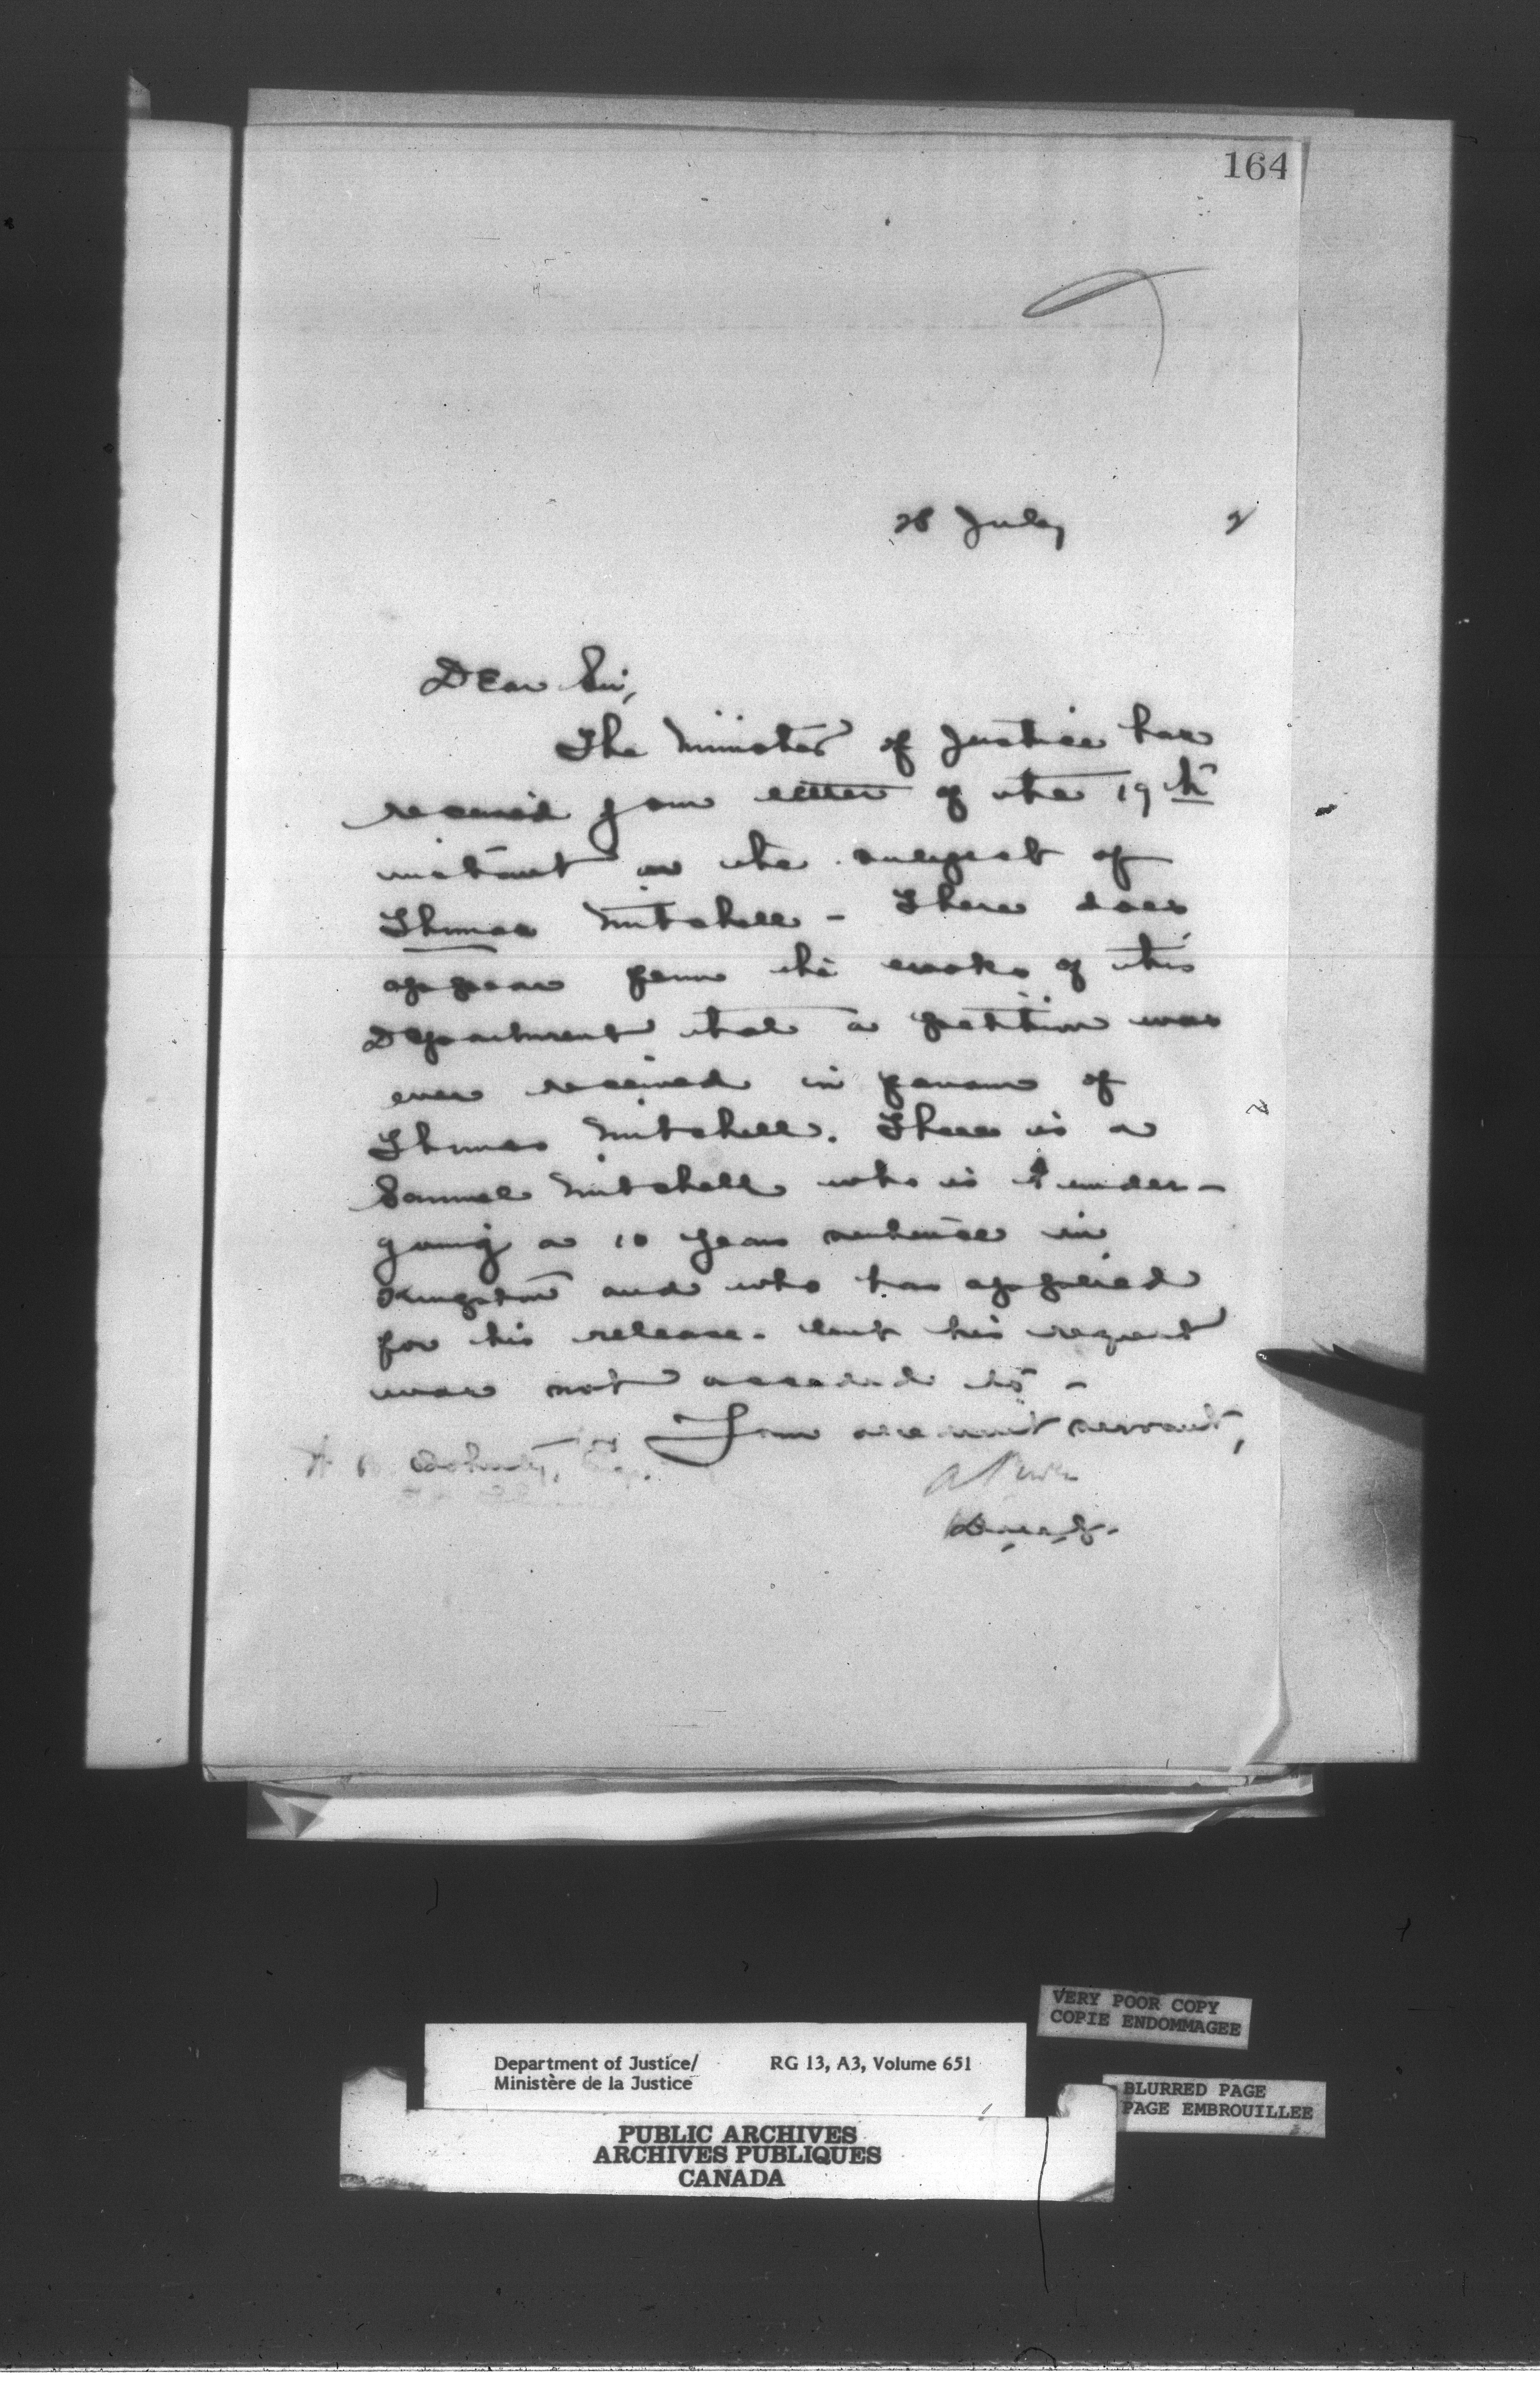 164
28 July 2
Dear Sir,
The Minister of Justice has
received your letter of the 19th
instant on the subject of
Thomas Mitchell - There does
appear from the books of this
Department that a petition was
ever received in favour of
Thomas Mitchell. There is a
Samuel Mitchell who is under-
going a 10 years sentence in
Kingston and who has applied
for his release - but his request
was not acceded to -
I am servant,
A Power
Doherty, Esq.
Department of Justice/
Ministère de la Justice
RG 13, A3, Volume 651
PUBLIC ARCHIVES
ARCHIVES PUBLIQUES
CANADA
VERY POOR COPY
COPIE ENDOMMAGEE
BLURRED PAGE
PAGE EMBROUILLEE